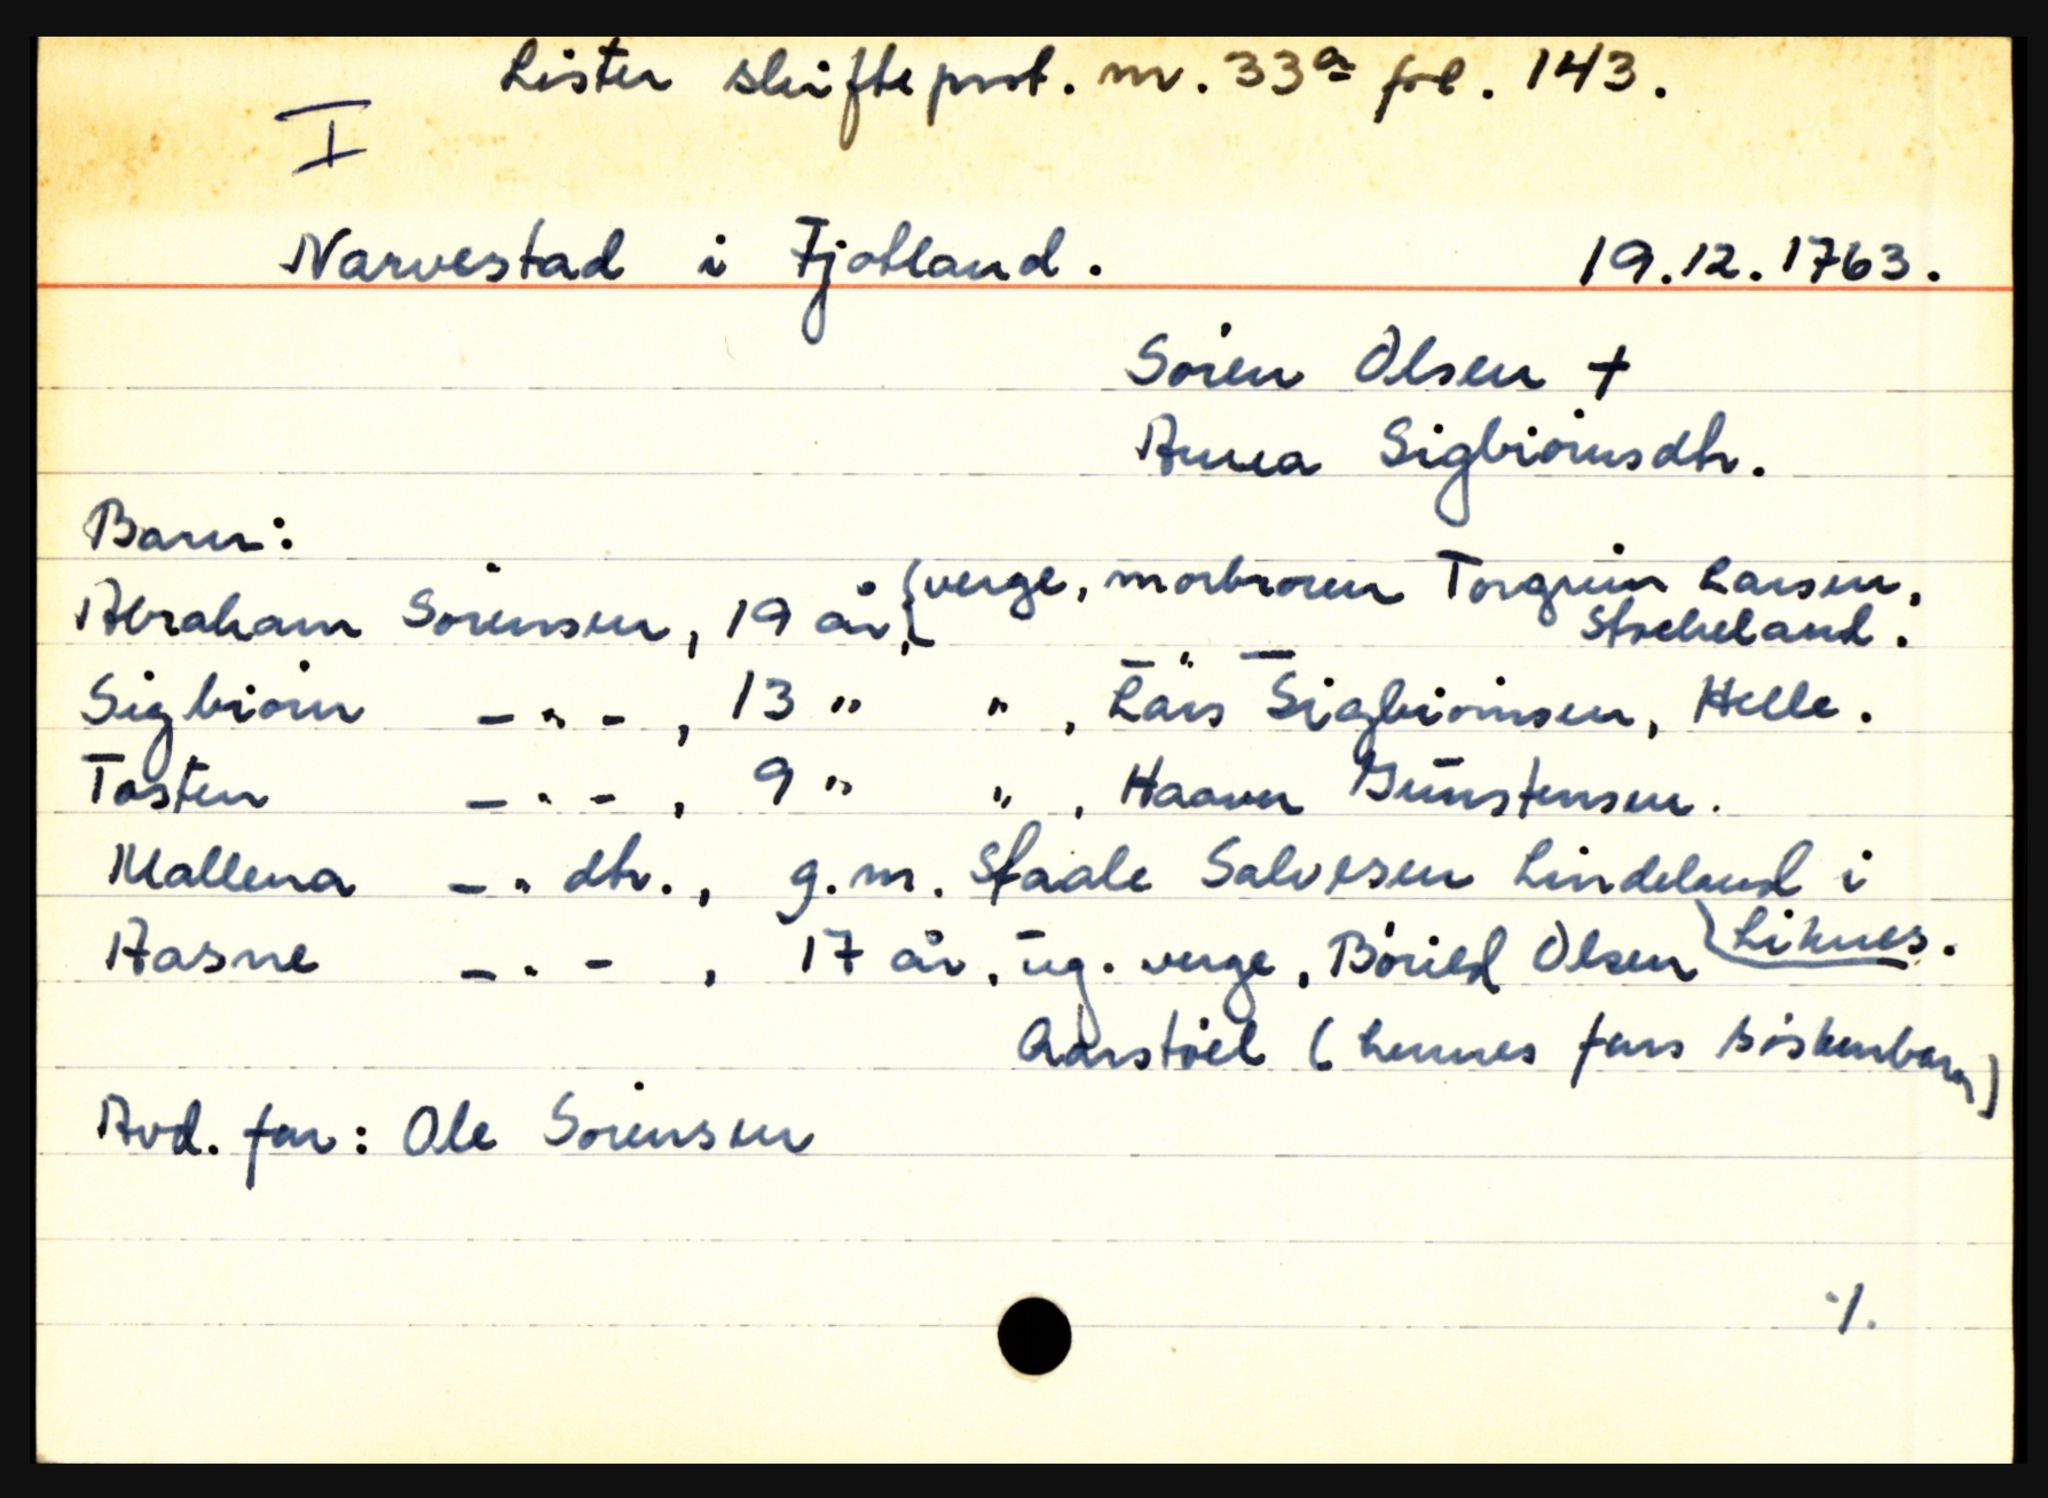 Lister skifteprot. nr. 33a fol. 143.
I
Narvestad i Fjotland. 19.12.1763.
Sören Olsen +
Anna Sigbiörnsdtr.
Barn:
Abraham Sörensen, 19 år, { verge, morbroren Torgrim Larsen,
Stockeland.
Sigbiörn - " - , 13 " " , Lars Sigbiörnsen, Helle.
Tosten - " - , 9 " " , Haaver Gunstensen.
Mallena - " dtr., g.m. Staale Salvesen Lindeland i
Liknes.
Aasne - " - , 17 år, ug. verge, Böried Olsen
Aarstöel (hennes fars söskenbarn)
Avd. far: Ole Sörensen
·/.